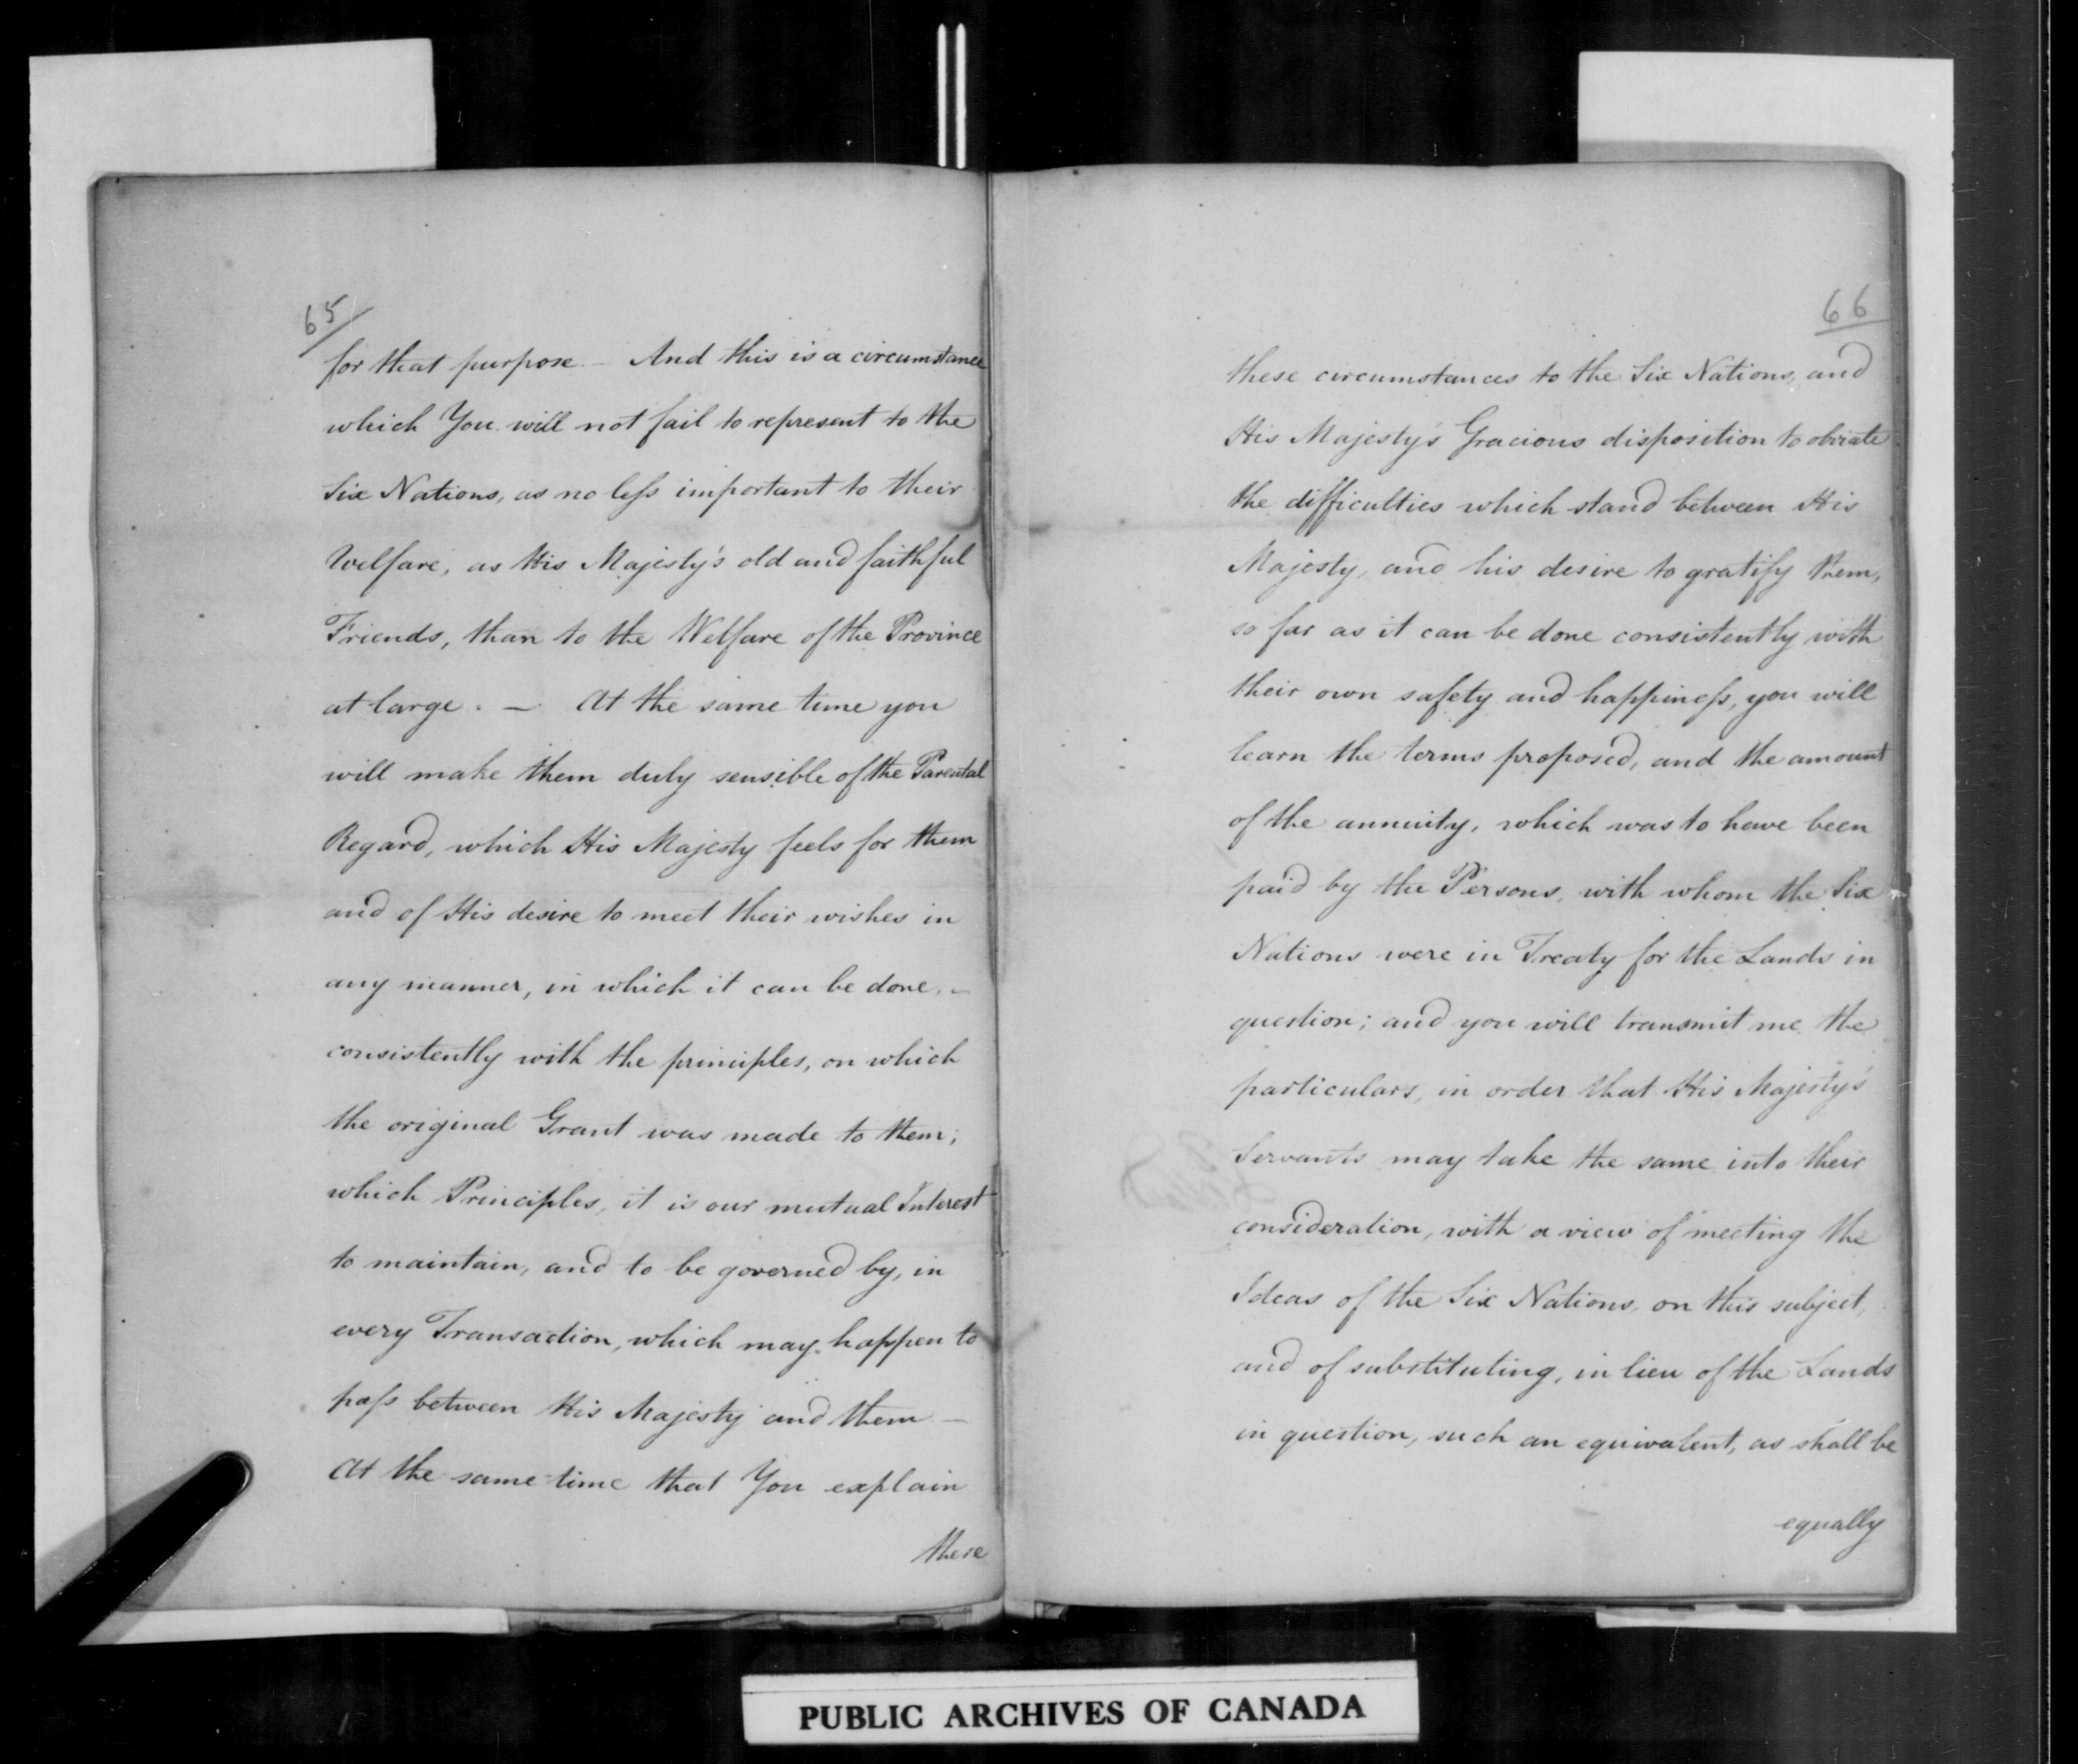 65
for that purpose. — And this is a circumstance
which You will not fail to represent to the
Six Nations, as no less important to their
Welfare, as His Majesty's old and faithful
Friends, than to the Welfare of the Province
at large. — At the same time you
will make them duly sensible of the Parental
Regard, which His Majesty feels for them
and of His desire to meet their wishes in
any manner, in which it can be done. —
consistently with the principles, on which
the original Grant was made to them;
which Principles, it is our mutual Interest
to maintain, and to be governed by, in
every Transaction, which may happen to
pass between His Majesty and them —
At the same time that You explain
these
66
these circumstances to the Six Nations, and
His Majesty's Gracious disposition to obviate
the difficulties which stand between His
Majesty, and his desire to gratify them,
so far as it can be done consistently with
their own safety and happiness, you will
learn the terms proposed, and the amount
of the annuity, which was to have been
paid by the Persons, with whom the Six
Nations were in Treaty for the Lands in
question; and you will transmit me the
particulars, in order that His Majesty's
Servants may take the same into their
consideration, with a view of meeting the
Ideas of the Six Nations, on this subject,
and of substituting, in lieu of the Lands
in question, such an equivalent, as shall be
equally
PUBLIC ARCHIVES OF CANADA